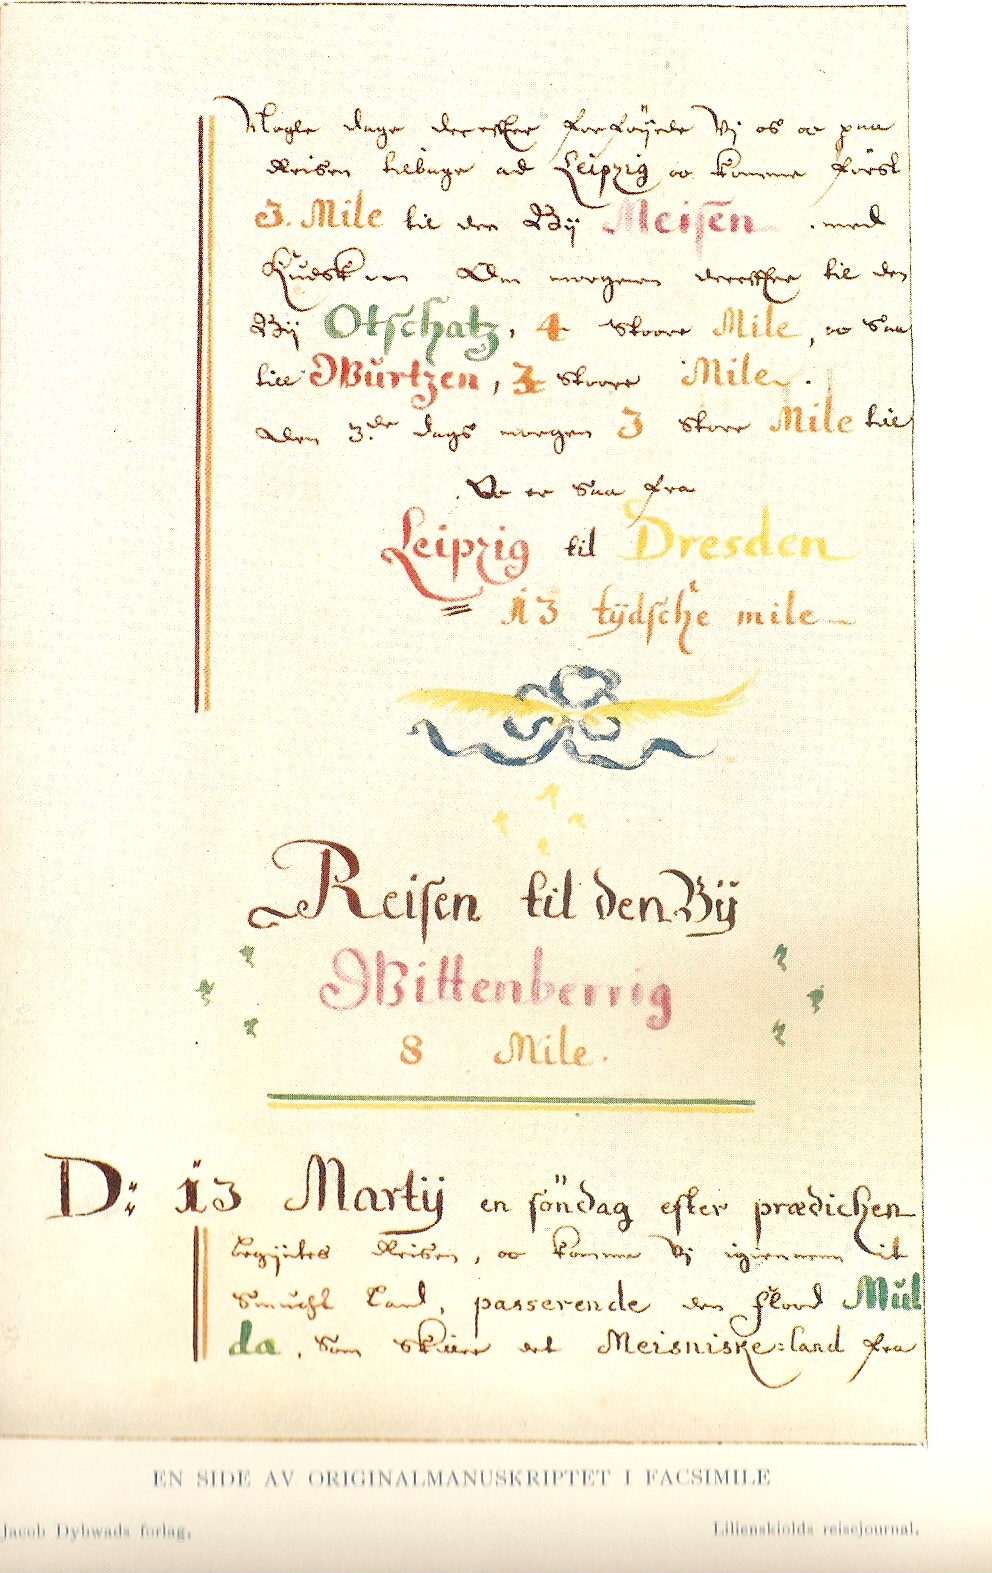 Nogle dage derefter forföyede Vj os oc paa
Reisen tilbage ad Leipzig oc komme först
3. Mile til den Bÿ Meisen . med
Kudsk Om morgenen derefter til den
Bÿ Otschatz, 4 stoore Mile, oc saa
till Würtzen, 3 stoore Mile.
Den 3de dags morgen 3 store Mile til
er saa fra
Leipzig til Dresden
13 tÿdsche mile
Reisen til den Bÿ
Wittenberrig
8 Mile.
D: 13 Martij en söndag efter prædichen
begyntes Reisen, oc komme Vj igiennem it
Smucht Land, passerende den flood Mul
da, som skiær det Meisniske:land fra
EN SIDE AV ORIGINALMANUSKRIPTET I FACSIMILE
Jacob Dybwads forlag.
Lilienskiolds reisejournal.